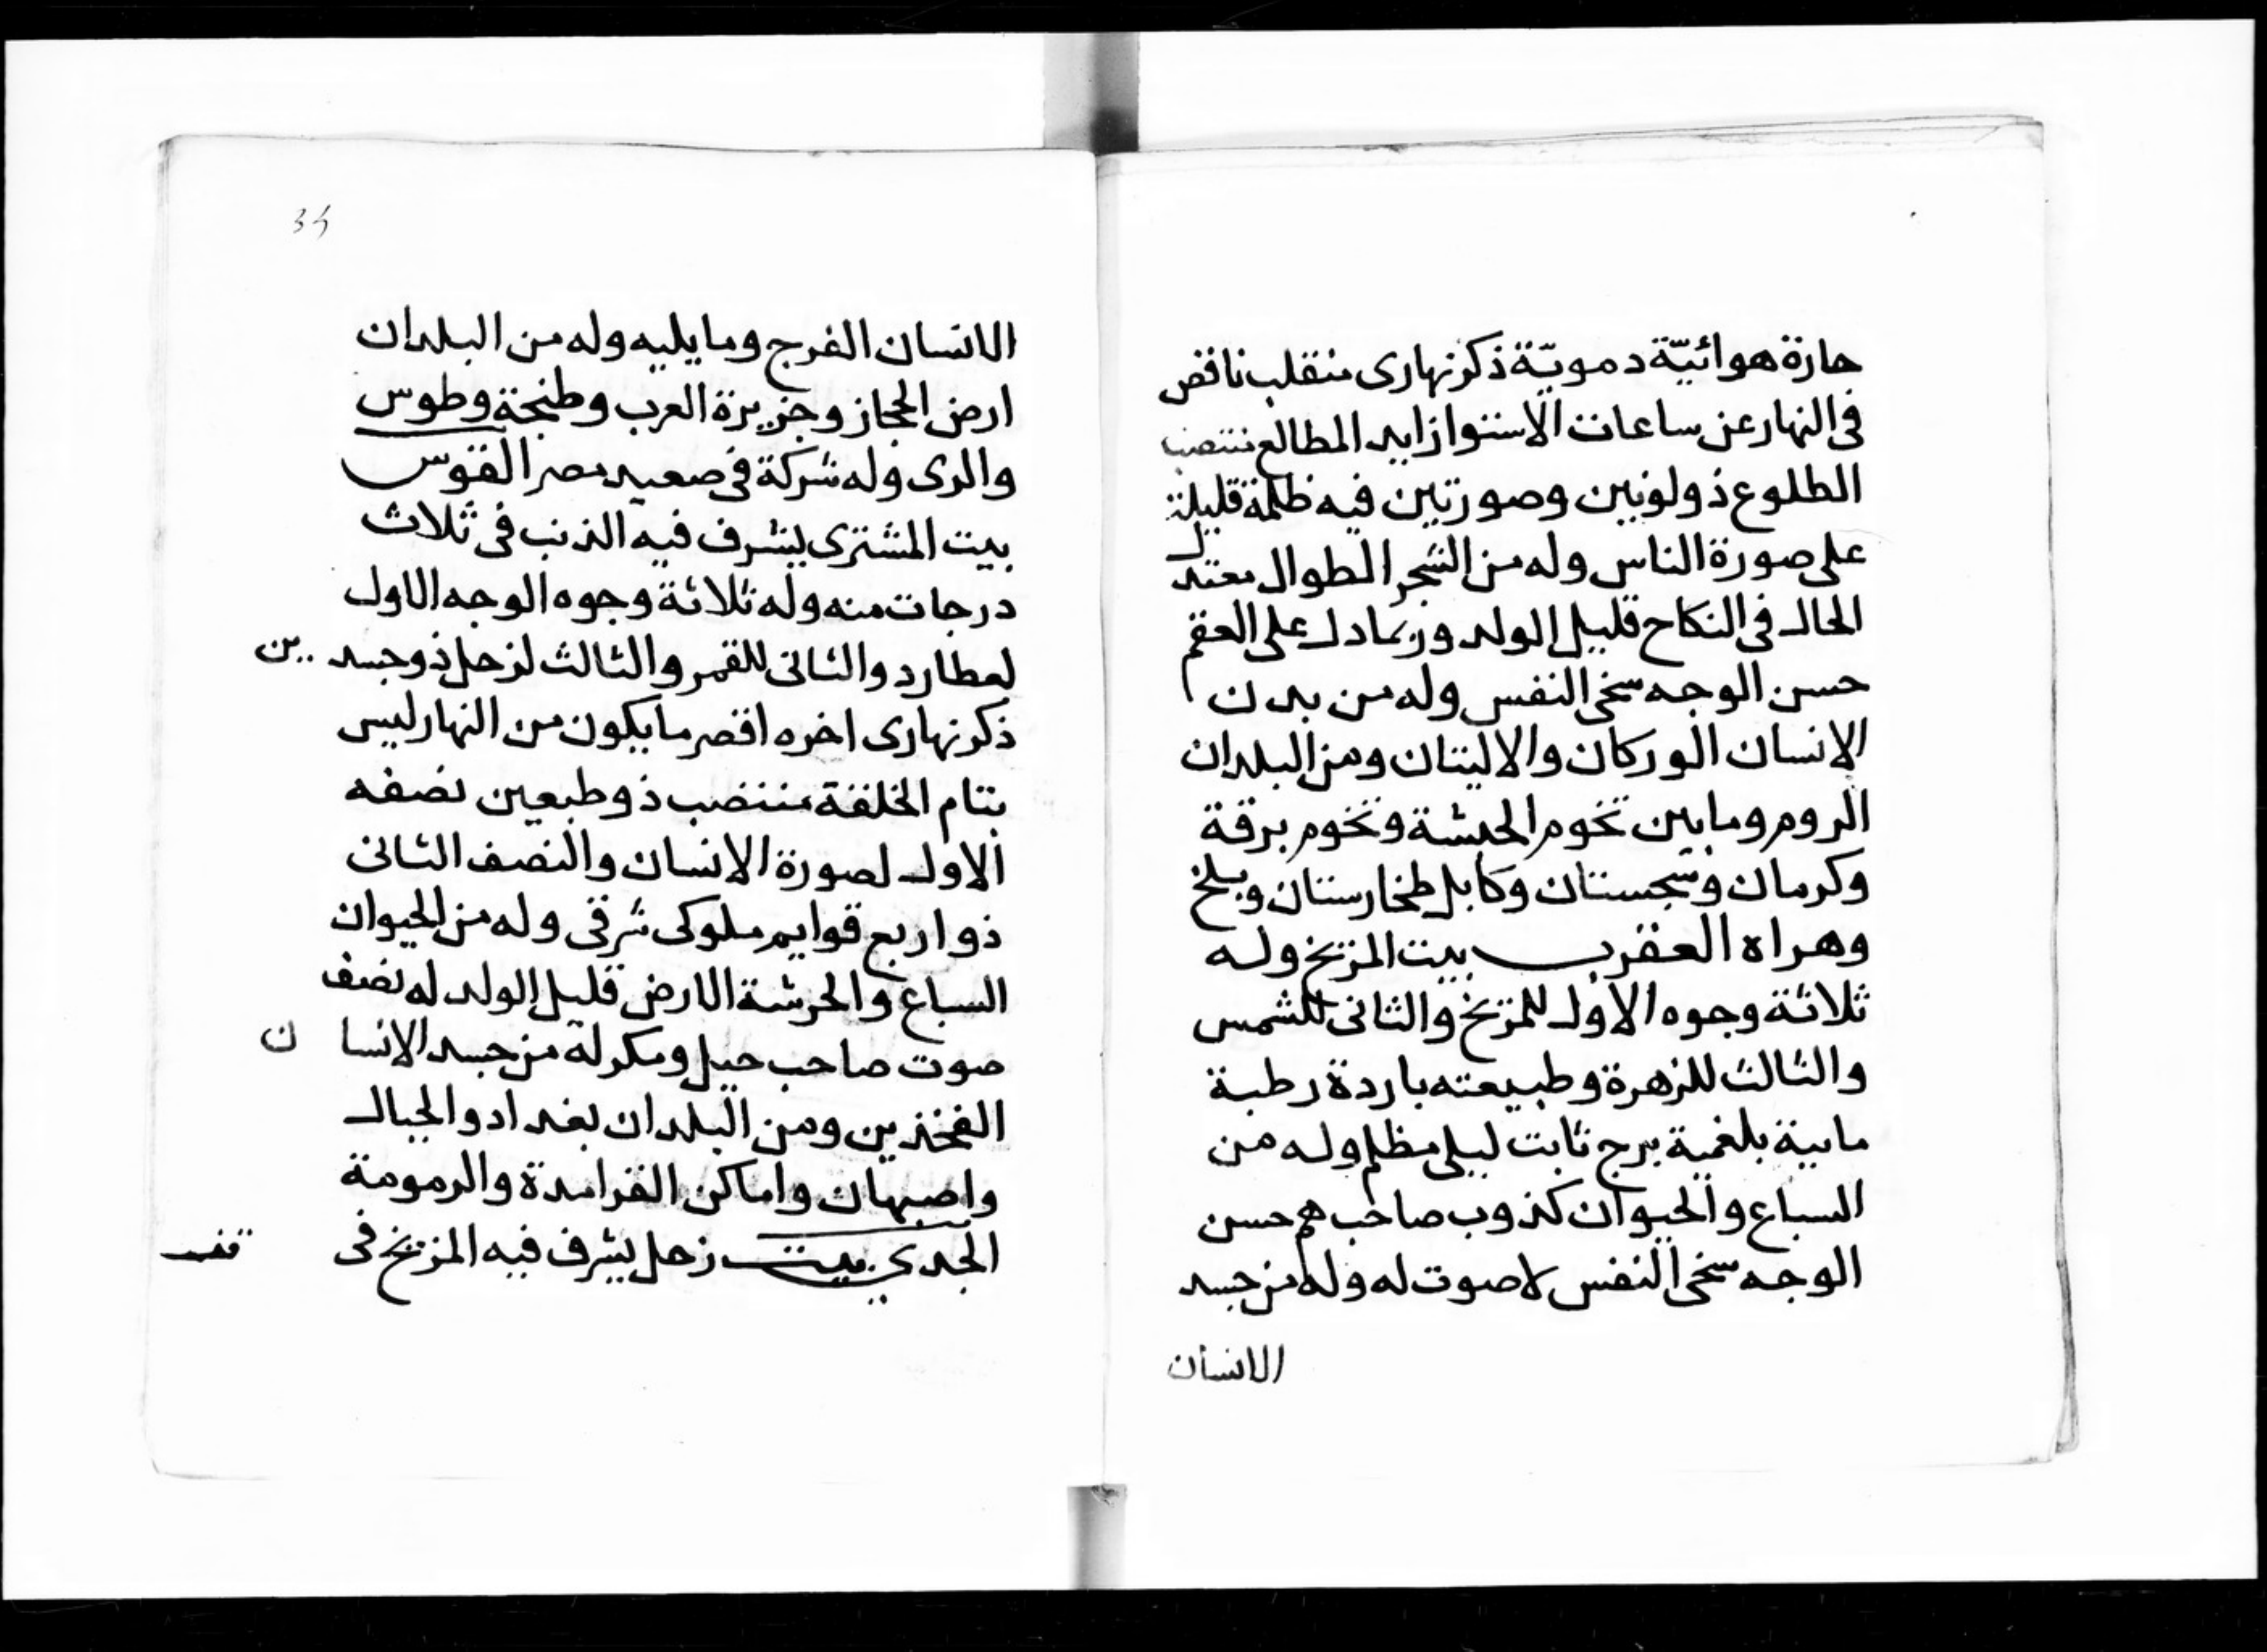 حارة هوائيّة دمويّة ذكر نهارى منقلب ناقص
فى النهار عن ساعات الاستوا زايد المطالع منتصب
الطلوع ذو لونين وصورتين فيه ظلمة قليلة
على صورة الناس وله من الشجر الطوال معتدل
الحال فى النكاح قليل الولد وربما دل على العقم
حسن الوجه سخى النفس وله من بدن
الانسان الوركان والاليتان ومن البلدان
الروم وما بين تخوم الحبشة وتخوم برقة
وكرمان وسجستان وكابل طخارستان وبلخ
وهراه العقرب بيت المريخ وله
ثلاثة وجوه الاول للمريخ والثانى للشمس
والثالث للزهرة وطبيعته باردة رطبة
مايية بلغمية برج ثابت ليلى مظلم وله من
السباع والحيوان كذوب صاحب هم حسن
الوجه سخى النفس لا صوت له وله من جسد
الانسان
34
الانسان الفرج وما يليه وله من البلدان
ارض الحجاز وجزيرة العرب وطنجة وطوس
والرى وله شركة فى صعيد مصر القوس
بيت المشترى يشرف فيه الذنب فى ثلاث
درجات منه وله ثلاثة وجوه الوجه الاول
لعطارد والثانى للقمر والثالث لزحل ذو جسدين
ذكر نهارى اخره اقصر ما يكون من النهار ليس
بتام الخلقة منتصب ذو طبعين نصفه
الاول لصورة الانسان والنصف الثانى
ذو اربع قوايم ملوكى شرقى وله من الحيوان
السباع والحرشة الارض قليل الولد له نصف
صوت صاحب حيل ومكر له من جسد الانسان
الفخذين ومن البلدان بغداد والجبال
واصبهان واماكن الفرامدة والرمومة
الجدي بيت زحل يشرف فيه المريخ فى